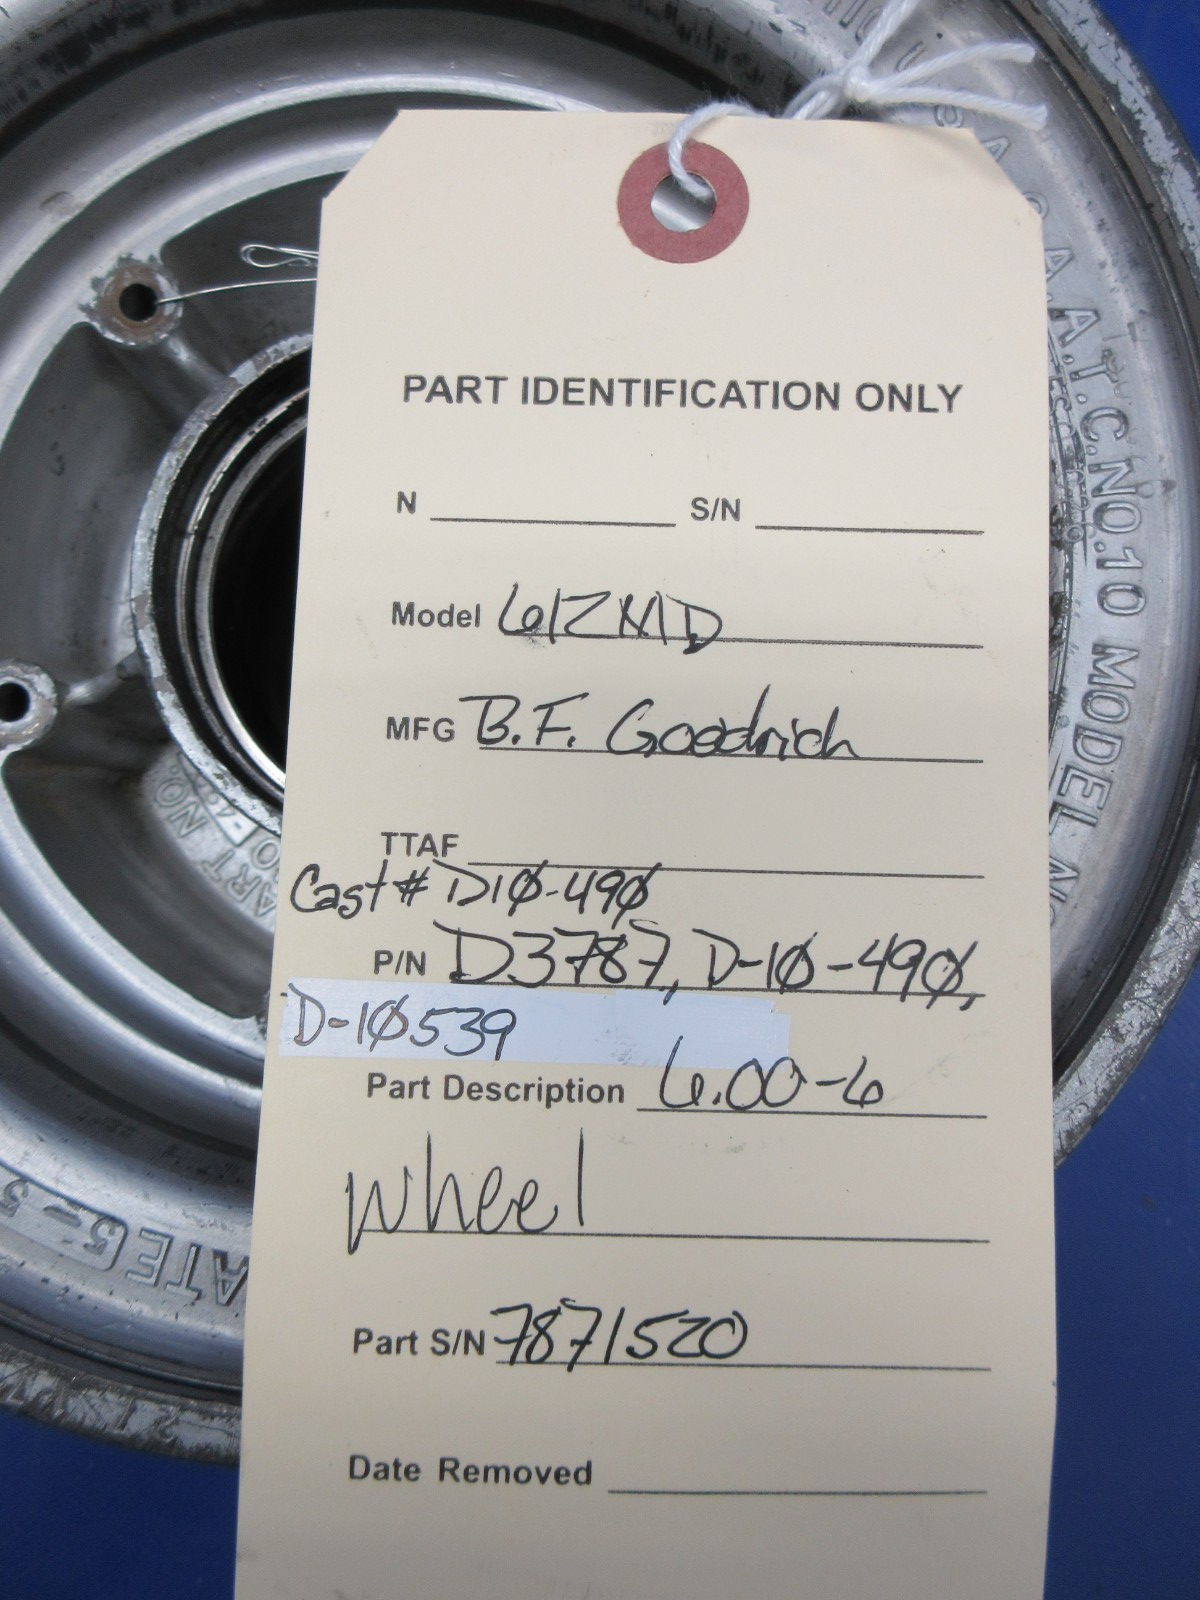 PART IDENTIFICATION ONLY
N S/N
Model 612MD
MFG B.F. Goodrich
TTAF
Cast # D10-490
P/N D3787, D-10-490,
D-10539
Part Description 6.00-6
wheel
Part S/N 7871520
Date Removed
A.A.T.C.NO.10 MODEL NO
PART NO.